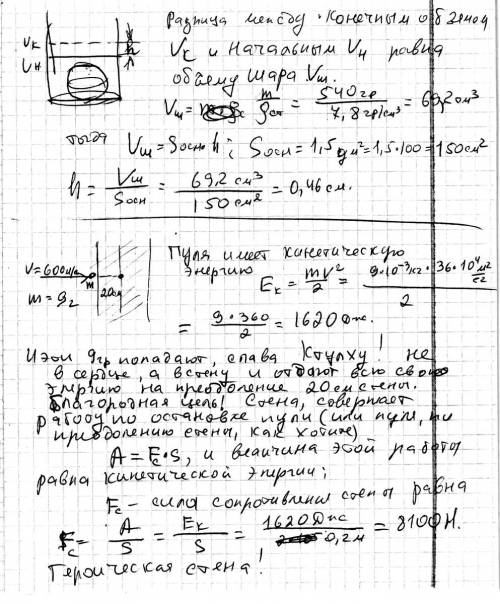 Разница между конечным объемом
Vк и начальным Vн равна
объему шара Vш.
Vк
h
Vн
Vш = m/ρст = 540 гр / 7,8 гр/см³ = 69,2 см³
тогда Vш = Sосн·h; Sосн = 1,5 дм² = 1,5·100 = 150 см²
h = Vш/Sосн = 69,2 см³ / 150 см² = 0,46 см.
Пуля имеет кинетическую
энергию
V = 600 м/с
m = 9г
m
20см
Eк = mv²/2 = 9·10⁻³кг · 36·10⁴ м²/с² / 2
= 9·360/2 = 1620 Дж.
И эти 9гр попадают, слава Ктулху! не
в сердце, а в стену и отдают всю свою
энергию на преодоление 20 см стены.
Благородная цель! Стена, совершает
работу по остановке пули (или пуля, по
преодолению стены, как хотите)
A = Fс·S, и величина этой работы
равна кинетической энергии;
Fс – сила сопротивления стены равна
Fс = A/S = Eк/S = 1620 Дж / 0,2м = 8100 Н.
Героическая стена!